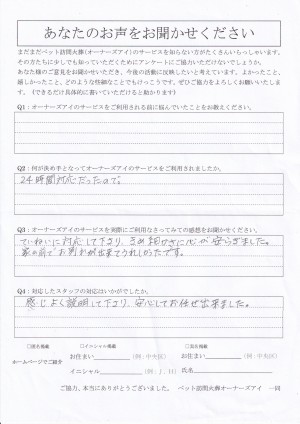 あなたのお声をお聞かせください
まだまだペット訪問火葬(オーナーズアイ)のサービスを知らない方がたくさんいらっしゃいます。
その方たちに少しでも知っていただくためにアンケートにご協力いただけないでしょうか。
あなた様のご意見をお聞かせいただき、今後の活動に反映したいと考えています。よかったこと、
嬉しかったこと、どのような些細なことでもけっこうです。ぜひご協力をよろしくお願いいたします。
(できるだけ具体的に書いていただけると助かります)
Q1:オーナーズアイのサービスをご利用される前に悩んでいたことをお教えください。
Q2:何が決め手となってオーナーズアイのサービスをご利用されましたか。
24時間対応だったので。
Q3:オーナーズアイのサービスを実際にご利用なさってみての感想をお聞かせください。
ていねいに対応して下さり、きめ細かさに心が安らぎました。
家の前でお別れが出来てうれしかったです。
Q4:対応したスタッフの対応はいかがでしたか。
感じよく説明して下さり、安心してお任せ出来ました。
□匿名掲載 □イニシャル掲載 □実名掲載
お住まい (例:中央区) お住まい (例:中央区)
ホームページでご紹介
イニシャル (例:J.H) 氏名
ご協力、本当にありがとうございました。 ペット訪問火葬オーナーズアイ 一同